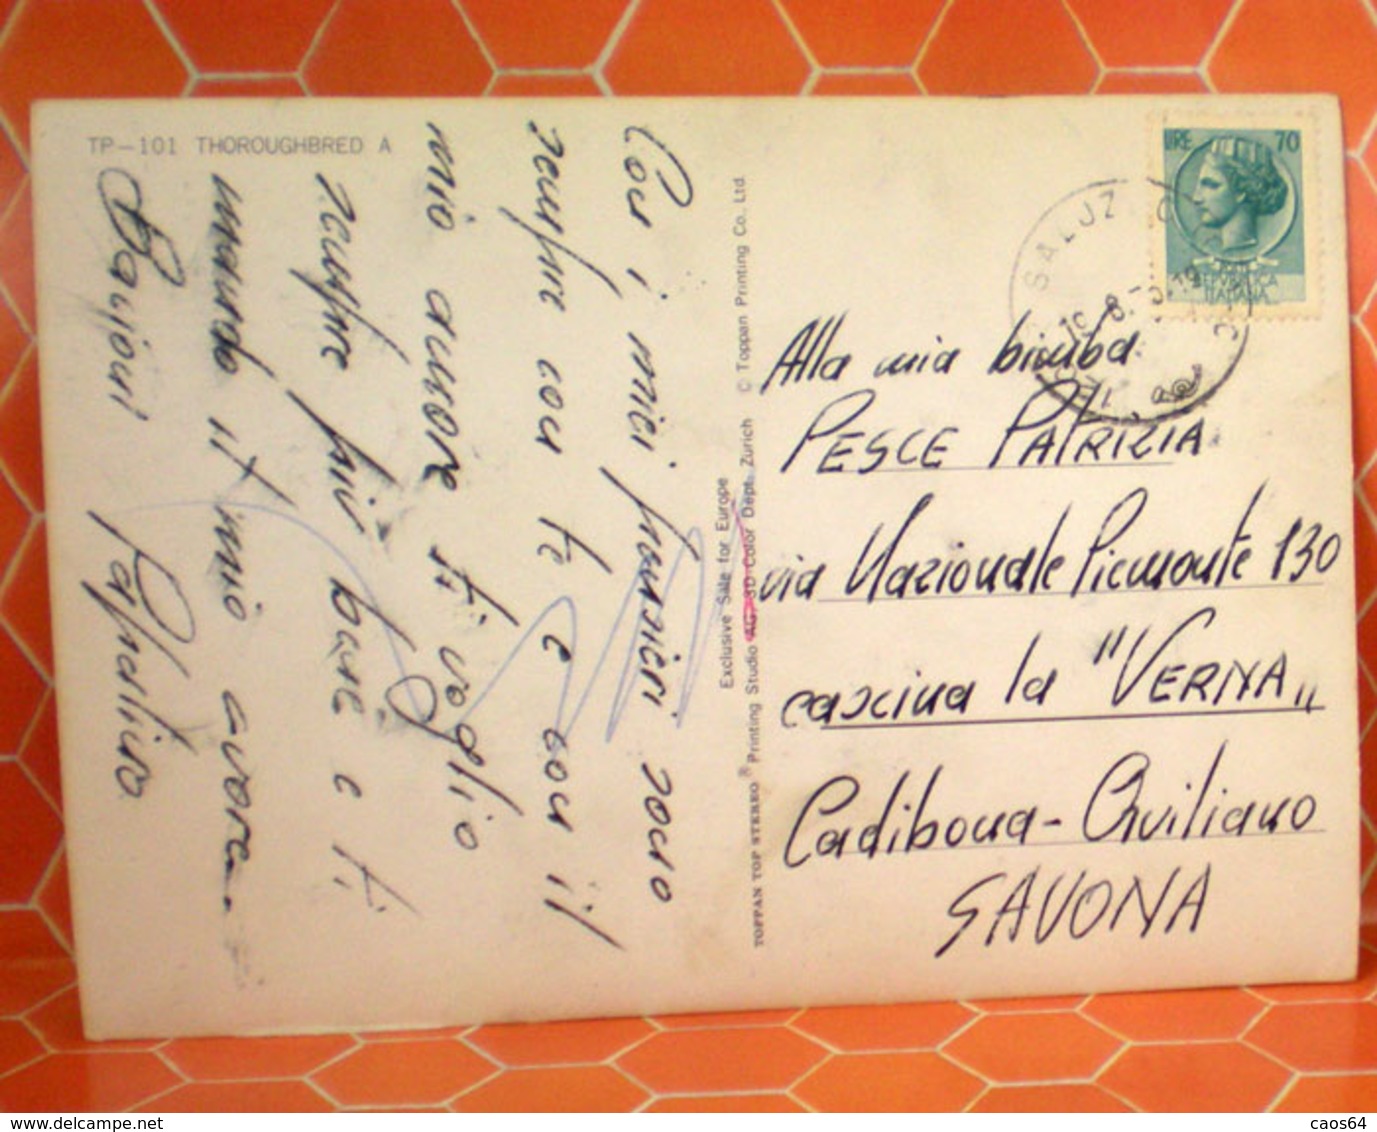 TP-101 THOROUGHBRED A
Con i miei pensieri sono
sempre con te e con il
mio amore ti voglio
sempre più bene e ti
mando il mio amore
Bacioni
LIRE 70
REPUBBLICA
ITALIANA
SALUZZO
Alla mia bimba
PESCE PATRIZIA
via Nazionale Piemonte 130
cascina la "VERNA"
Cadibona - Quiliano
SAVONA
Exclusive Sale for Europe
TOPPAN TOP STEREO® Printing Studio AG. 3D Color Dept. Zurich © Toppan Printing Co., Ltd.
www.delcampe.net
caos64